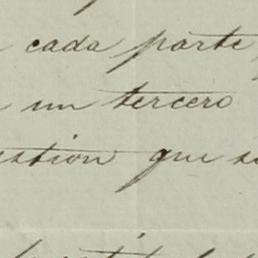 cada parte
un tercero
estion que